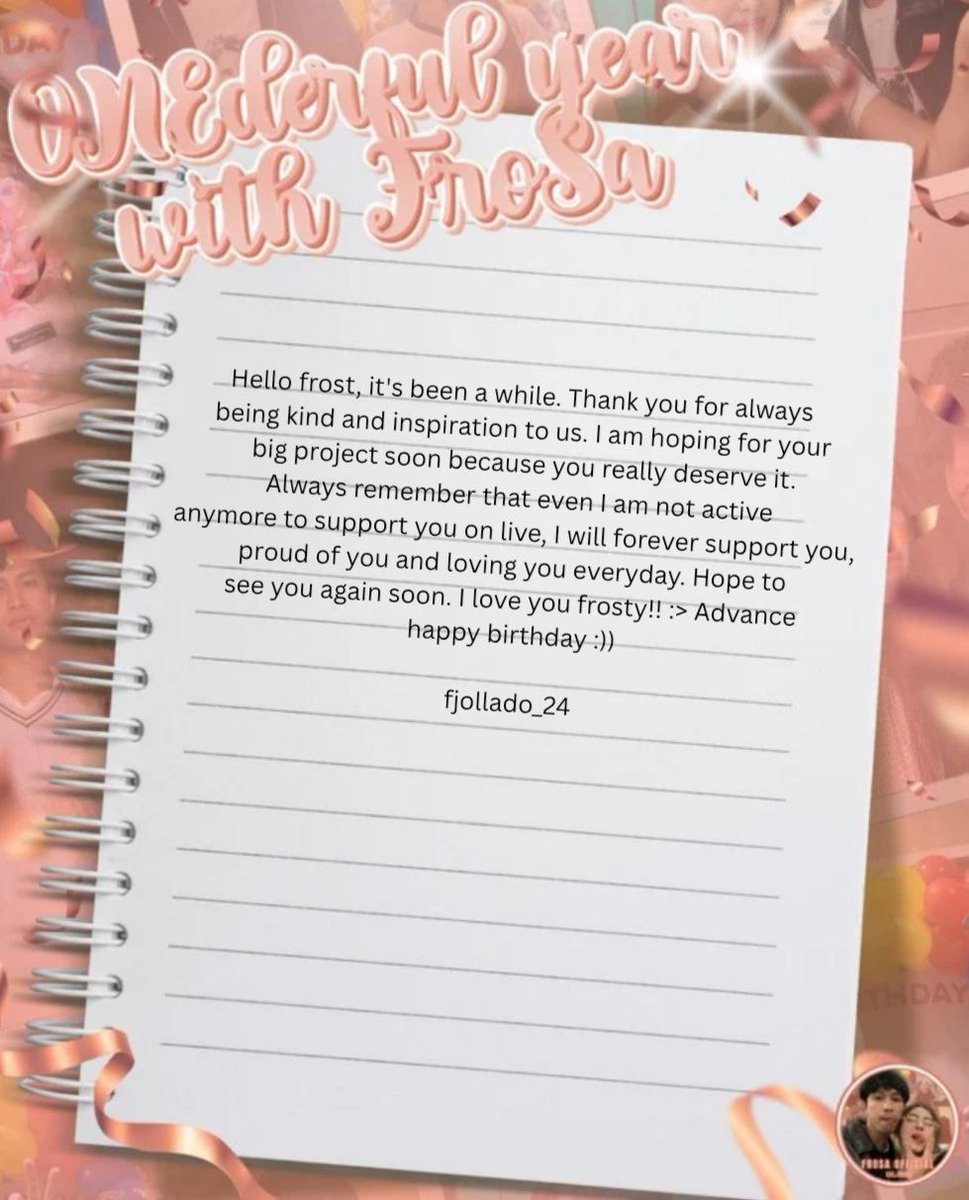 ONEderful year
with FroSa
Hello frost, it's been a while. Thank you for always
being kind and inspiration to us. I am hoping for your
big project soon because you really deserve it.
Always remember that even I am not active
anymore to support you on live, I will forever support you,
proud of you and loving you everyday. Hope to
see you again soon. I love you frosty!! :> Advance
happy birthday :))
fjollado_24
THDAY
FROSA OFFICIAL